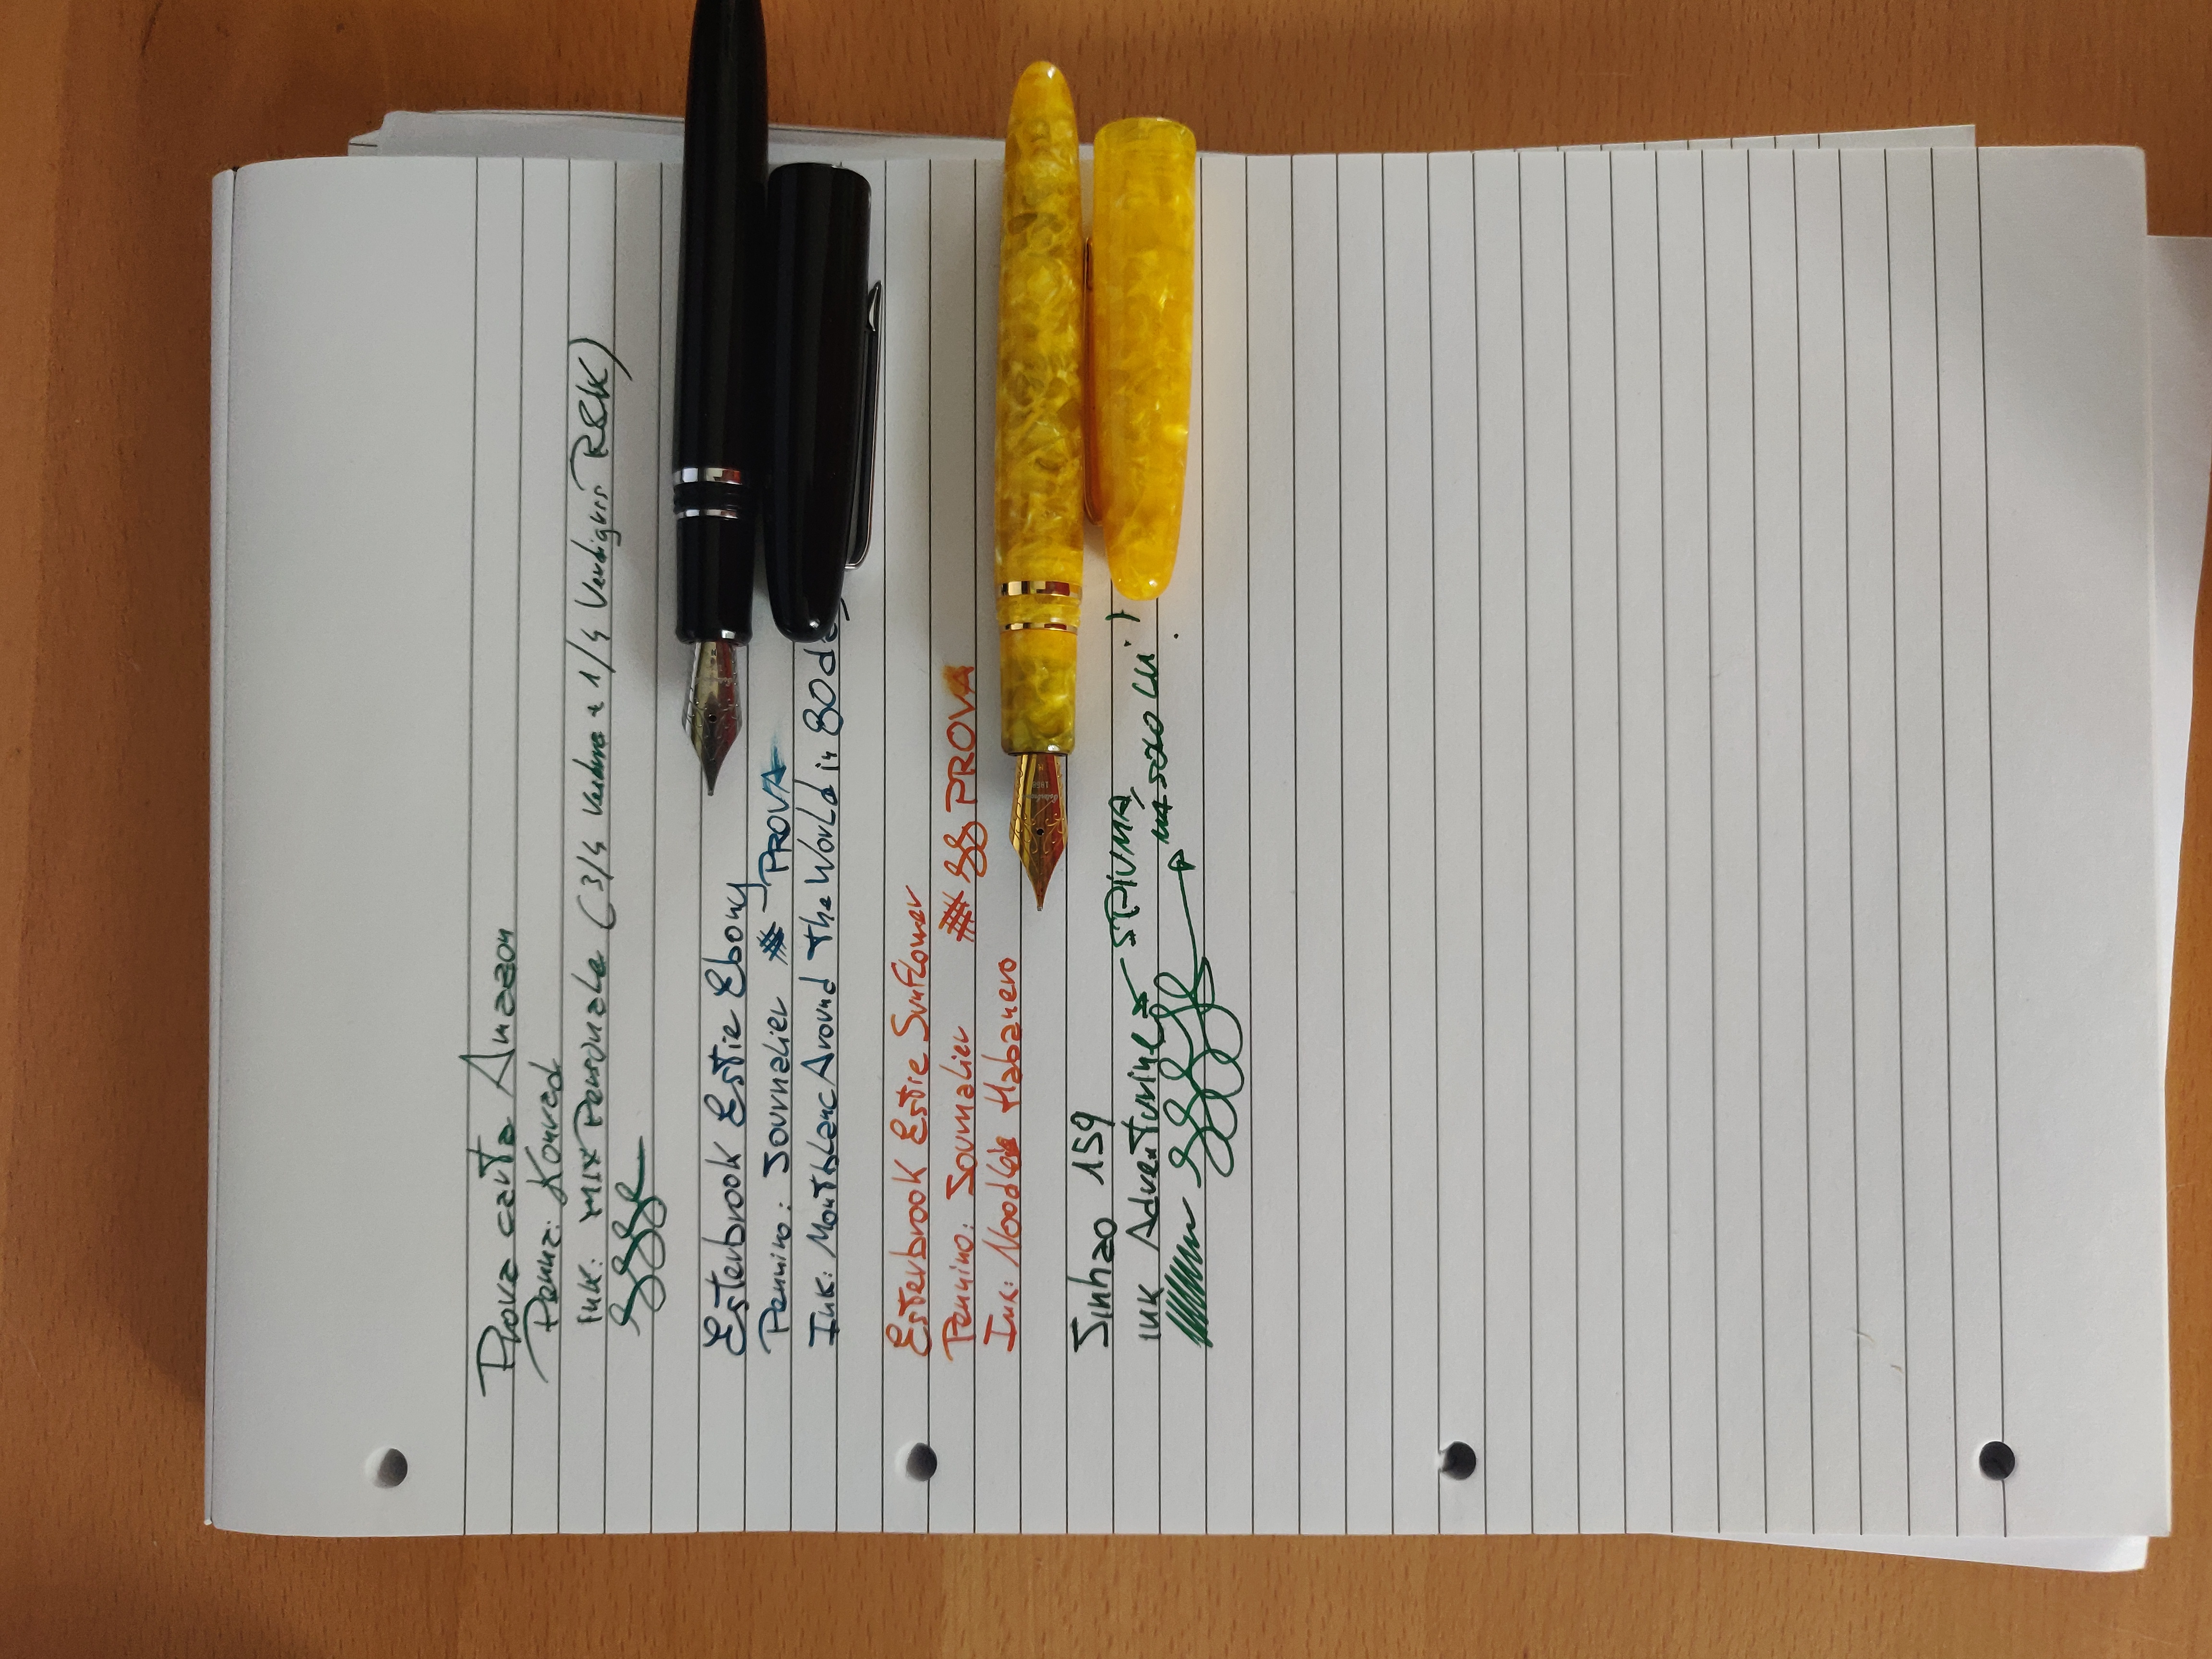 Prova carta Amazon
Penna: Konrad
Ink: MIX Personale (3/4 Verdure e 1/4 Verdigris R&K)
Esterbrook Estie Ebony
Pennino: Journalier # PROVA
Ink: Montblanc Around the World in 80 d
Esterbrook Estie Sunflower
Pennino: Journalier ## PROVA
Ink: Noodles Habanero
Jinhao 159
Ink Adventurine SPIUMA